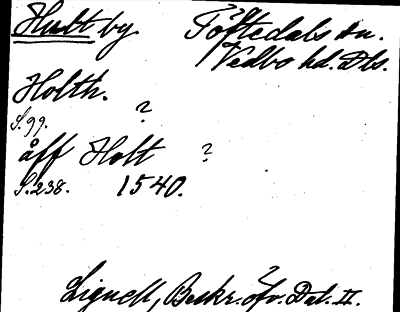 Hult by Töftedals sn.
Vedbo hd. Dls.
Holth. ?
S. 99.
åff Holt ?
S. 238. 1540.
Lignell, Beskr. öfv. Dal. II.